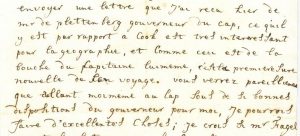 envoyer une lettre que j'ai reçu hier de
mr de plettenberg gouverneur du cap, ce qu'il
y est par rapport a Cook est tres interessant
pour la geographie, et comme ceci est de la
bouche du Capitaine luimeme, c'est la premiere sure
nouvelle de son voyage. vous verrez pareillement
que allant moimeme au Cap sous de si bonnes
dispositions du gouverneur pour moi, je pourrois
faire d'excellentes choses; je crois se mr